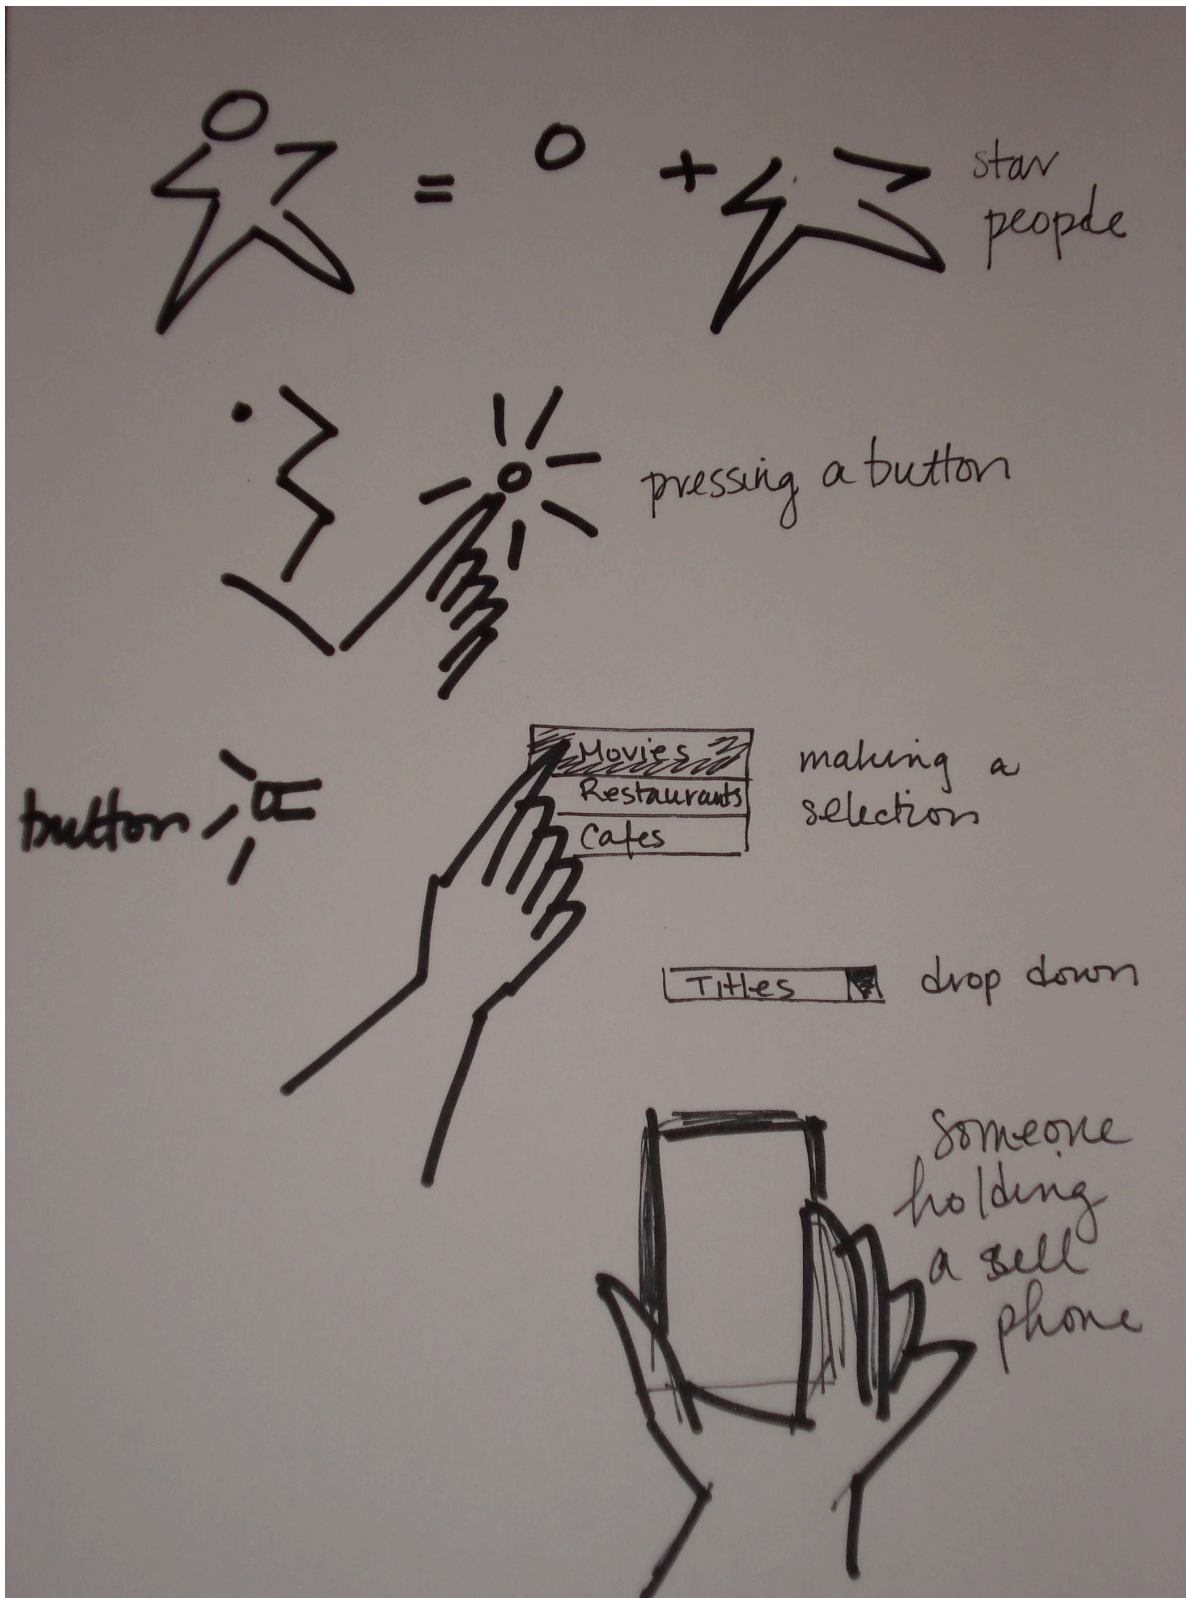 = + star
people
pressing a button
button
Movies
Restaurants
Cafes
making a
selection
Titles
drop down
someone
holding
a sell
phone